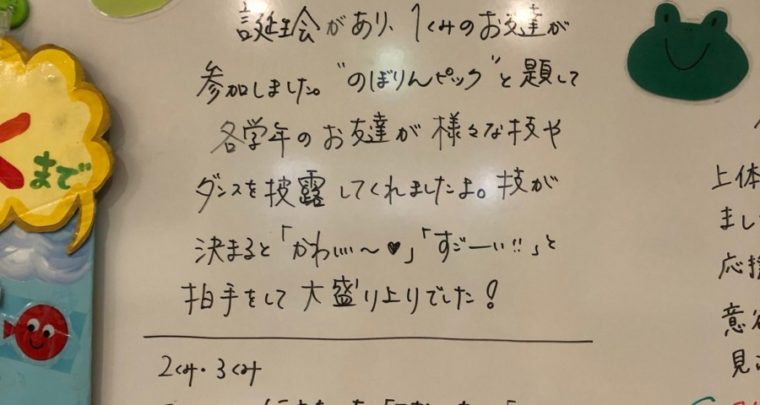 誕生会があり、1くみのお友達が
参加しました。"のぼりんピック"と題して
各学年のお友達が様々な技や
ダンスを披露してくれましたよ。技が
決まると「かわいい〜♥」「すごーい!!」と
拍手をして大盛り上りでした!
2くみ・3くみ
くまで
上体
まし
応援
見